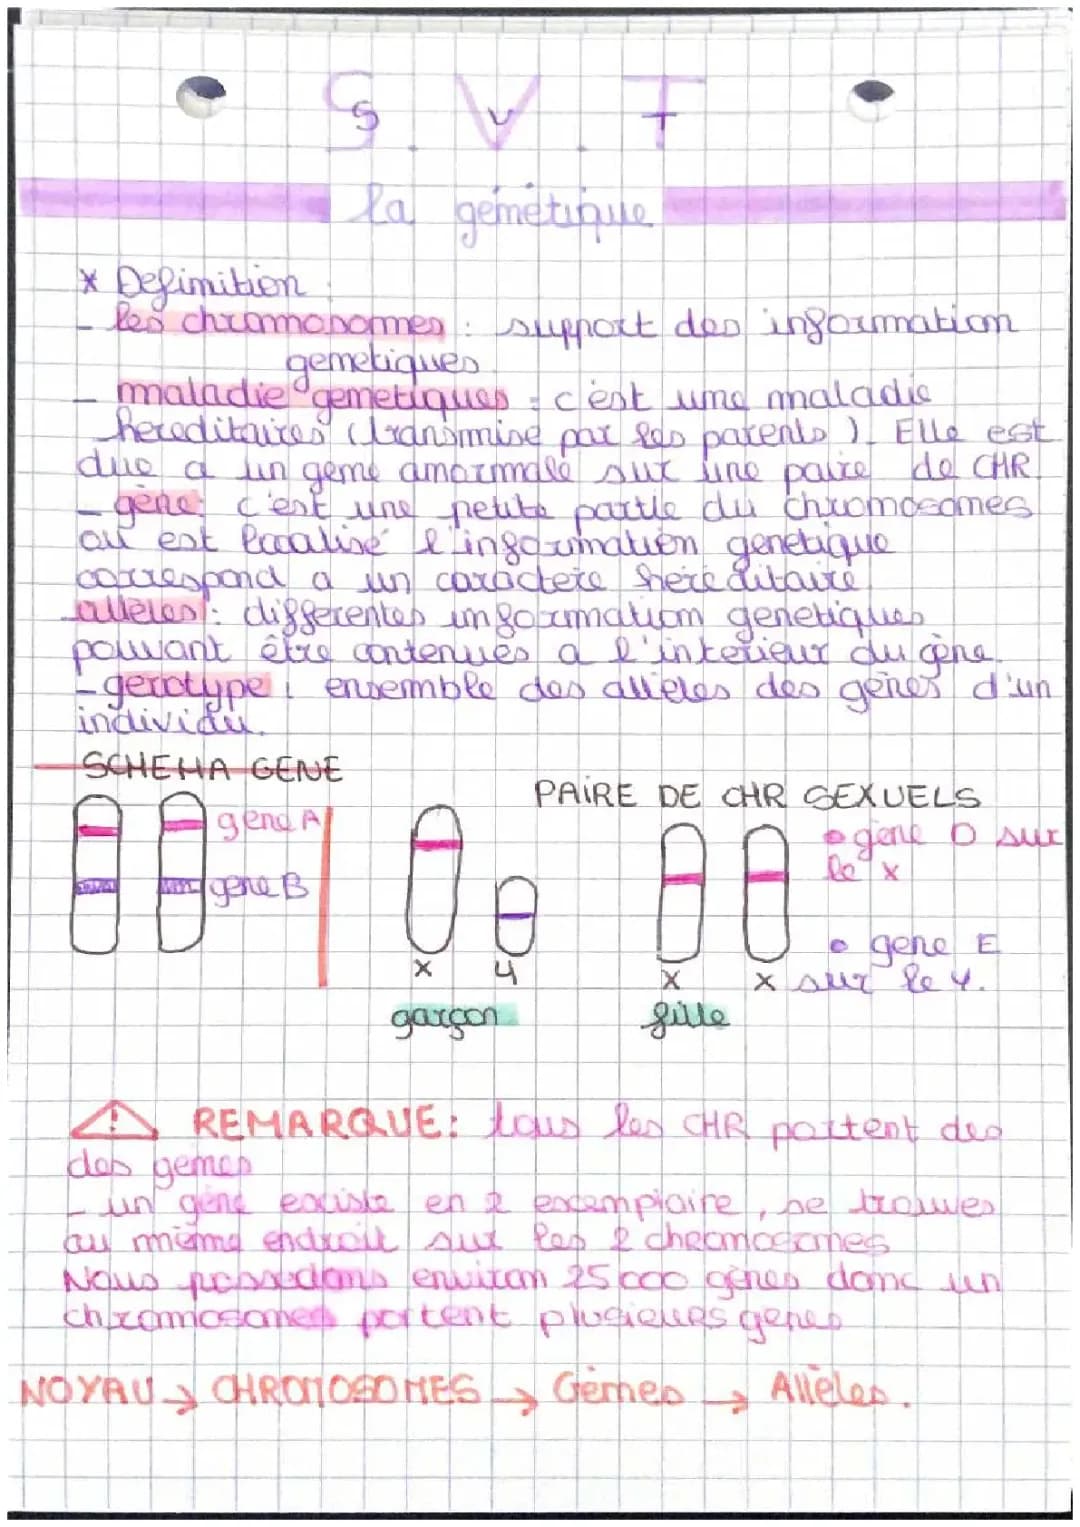 S. V. T
la génétique
* Definition :
- les chromosomes : support des information
genetiques
- maladie genetiques : c'est une maladie
hereditaires (transmise par les parents). Elle est
due a un gene anormale sur une paire de CHR
- gène : c'est une petite partie du chromosomes
ou est localisé l'information genetique
correspond a un caractere hereditaire
allèles : differentes information genetiques
pouvant être contenues a l'interieur du gène.
- genotype : ensemble des alleles des gènes d'un
individu.
SCHEMA GENE
PAIRE DE CHR SEXUELS
gene A
gene B
gène D sur
le x
gene E
sur le y.
x y
x x
garçon
fille
! REMARQUE : tous les CHR portent des
des genes
- un gène existe en 2 exemplaire, se trouves
au même endroit sur les 2 cheomosomes
Nous possedons environ 25 000 gènes donc un
chromosomes portent plusieurs genes
NOYAU → CHROMOSOMES → Gènes → Allèles.